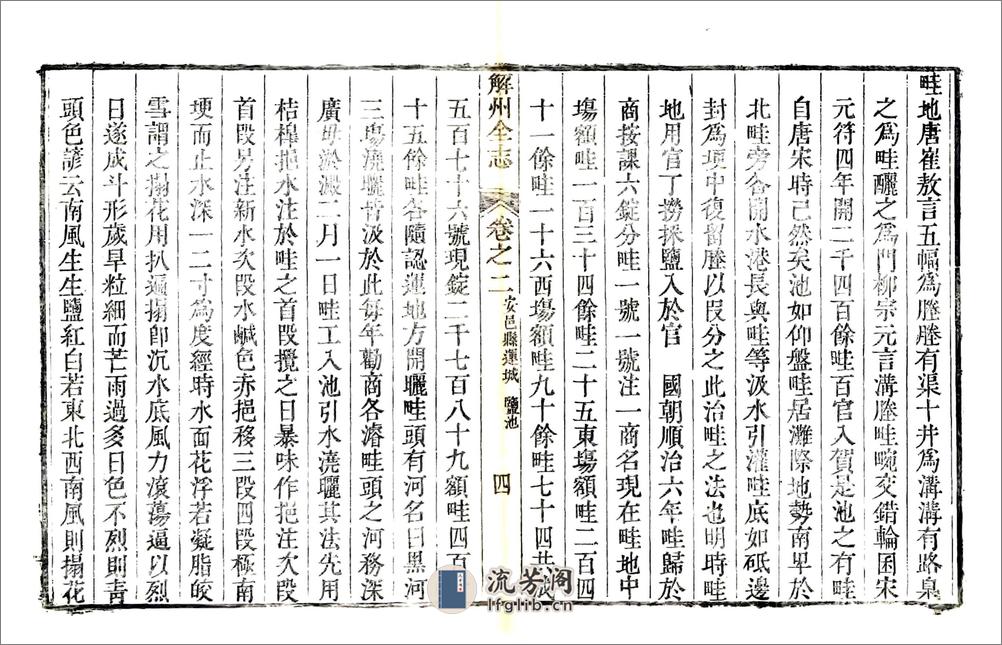 畦地唐崔敖言五幅為塍塍有渠十井為溝溝有路臬
之為畦釃之為門柳宗元言溝塍畦畹交錯輪囷宋
元符四年開二千四百餘畦百官入賀是池之有畦
自唐宋時已然矣池如仰盤畦居灘際地勢南畀於
北畦旁各開水港長與畦等汲水引灌畦底如砥邊
封為埂中復留塍以段分之此治畦之法也明時畦
地用官丁撈採鹽入於官 國朝順治六年畦歸於
商按課六錠分畦一號一號注一商名現在畦地中
塲額畦一百三十四餘畦二十五東塲額畦二百四
十一餘畦一十六西塲額畦九十餘畦七十四共
解州全志 卷之二 安邑縣運城 鹽池 四
五百七十六號現錠二千七百八十九額畦四百
十五餘畦各隨認運地方開曬畦頭有河名曰黑河
三塲澆曬皆汲於此每年勸商各濬畦頭之河務深
廣毋淤澱二月一日畦工入池引水澆曬其法先用
桔橰挹水注於畦之首段攪之日暴味作挹注次段
首段另注新水次段水鹹色赤挹移三段四段極南
埂而止水深一二寸為度經時水面花浮若凝脂皎
雪謂之搨花用扒遍搨卽沉水底風力滾蕩逼以烈
日遂成斗形歲旱粒細而芒雨過多日色不烈則靑
頭色諺云南風生生鹽紅白若東北西南風則搨花
流芳阁
lfglib.cn